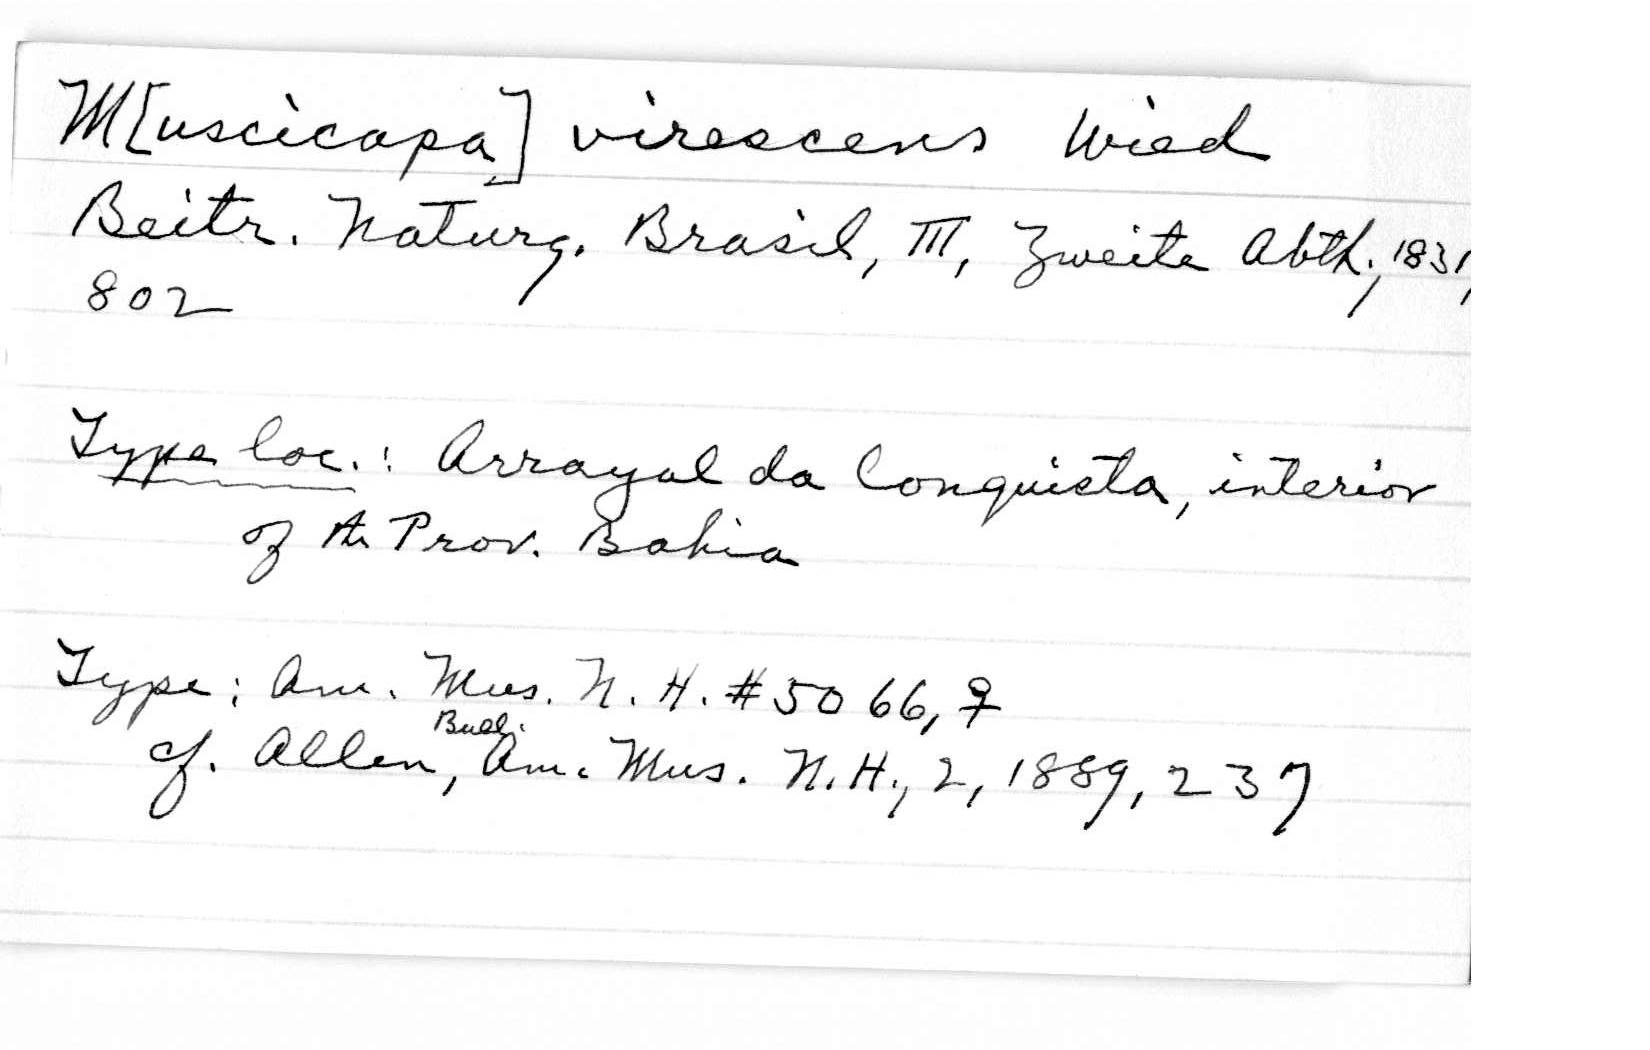 M[uscicapa] virescens Wied
Beitr. Naturg. Brasil, III, Zweite Abth., 1831,
802
Type loc.: Arrayal da Conquista, interior
of the Prov. Bahia
Type: Am. Mus. N. H. #5066, ♀
cf. Allen, Bull. Am. Mus. N. H., 2, 1889, 237